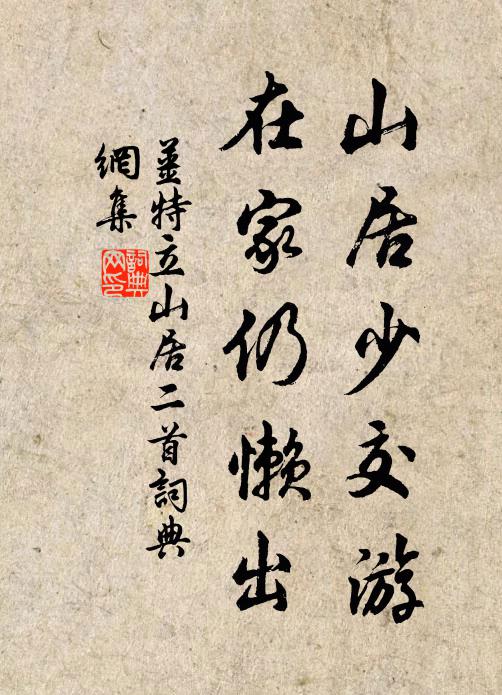 山居少交游
在家仍懒出
姜特立山居二首詞典
網集
詞典網印